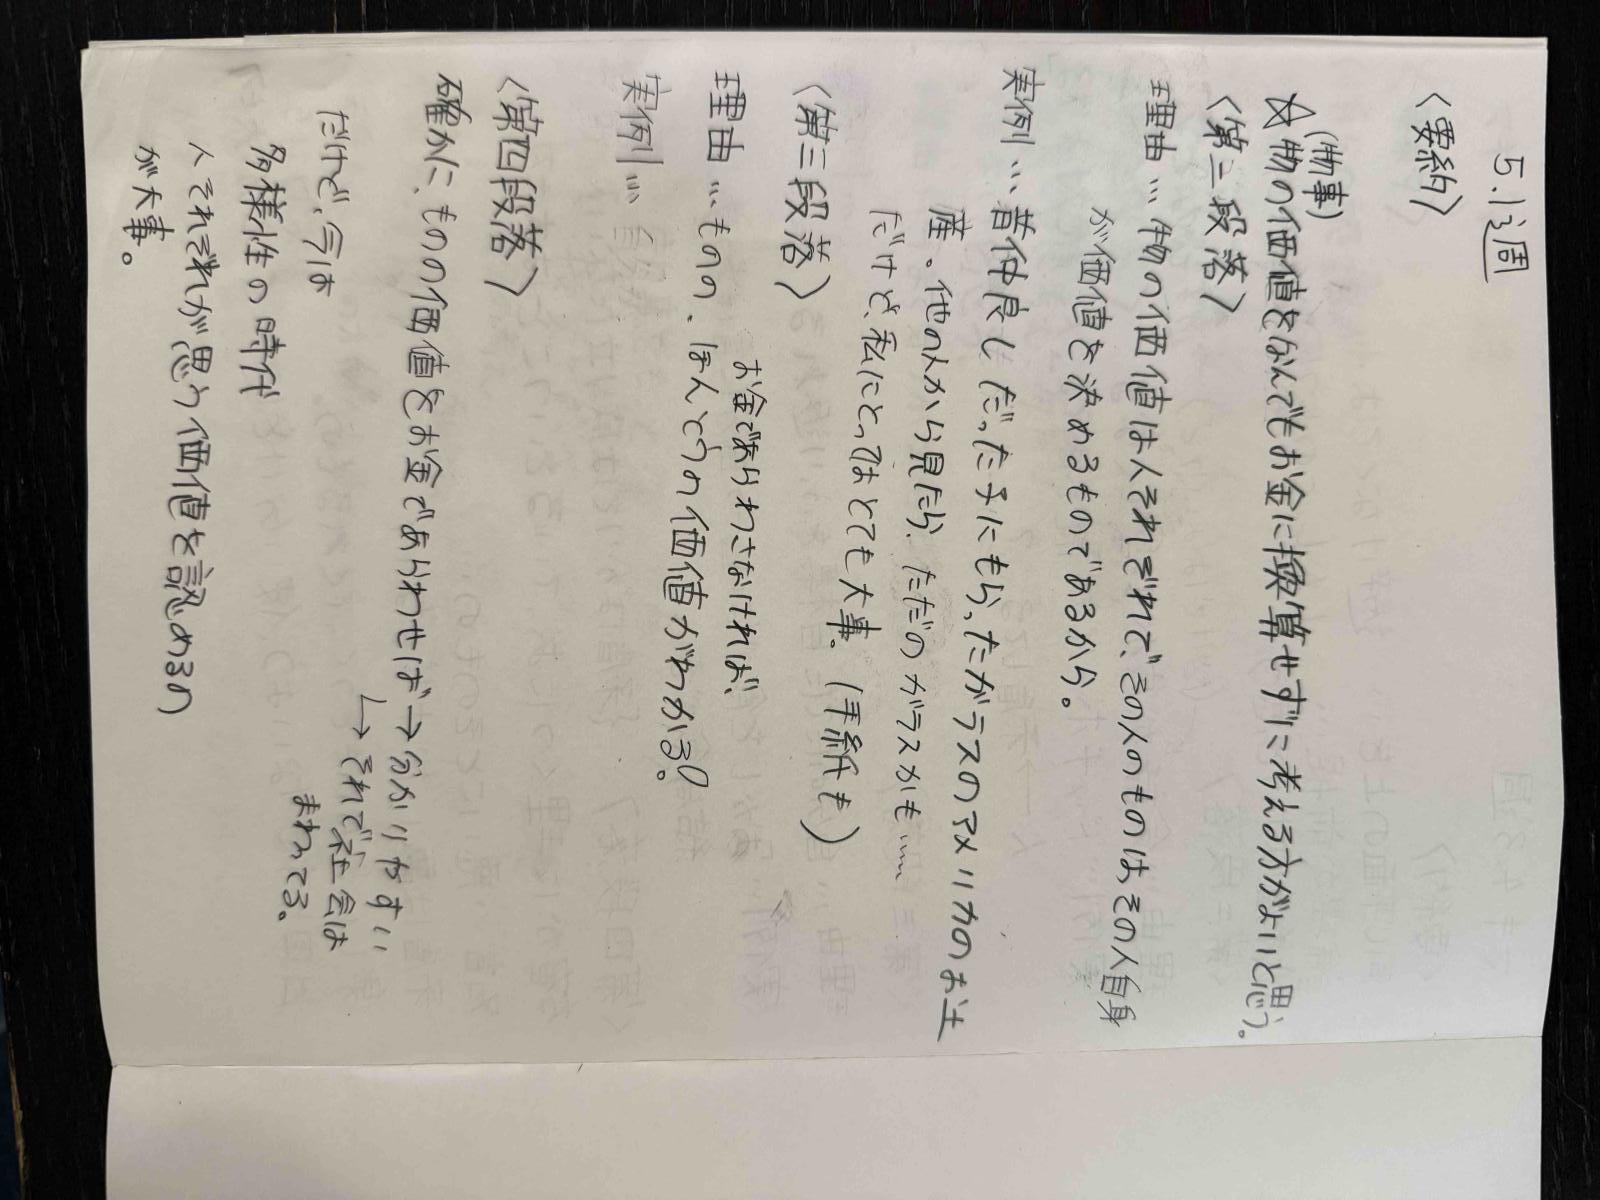 5.1週
〈要約〉
(物事)
☆物の価値をなんでもお金に換算せずに考える方がよいと思う。
〈第二段落〉
理由…物の価値は人それぞれで、その人のものは、その人自身
が価値を決めるものであるから。
実例…昔仲良しだった子にもらったガラスのアメリカのお土
産。他の人から見たら、ただのガラスかも……
だけど、私にとってはとても大事。(手紙も)
〈第三段落〉
お金であらわさなければ、
理由…ものの、ほんとうの価値がわかる。
実例…
〈第四段落〉
確かに、ものの価値をお金であらわせば→分かりやすい
↳それで社会は
まわってる。
だけど、今は
多様性の時代
人それぞれが思う価値を認めるの
が大事。